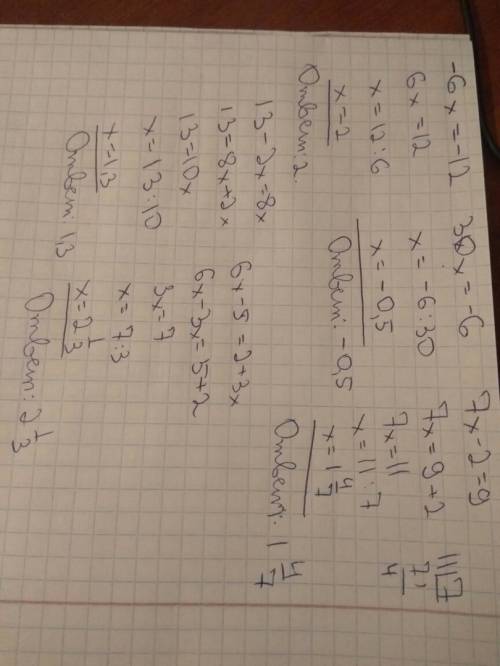 -6x = -12
6x = 12
x = 12:6
x = 2
Ответ: 2.
30x = -6
x = -6:30
x = -0,5
Ответ: -0,5
7x - 2 = 9
7x = 9 + 2
7x = 11
x = 11:7
x = 1 4/7
Ответ: 1 4/7
11|7
7 1
4
13 - 2x = 8x
13 = 8x + 2x
13 = 10x
x = 13:10
x = 1,3
Ответ: 1,3
6x - 5 = 2 + 3x
6x - 3x = 5 + 2
3x = 7
x = 7:3
x = 2 1/3
Ответ: 2 1/3